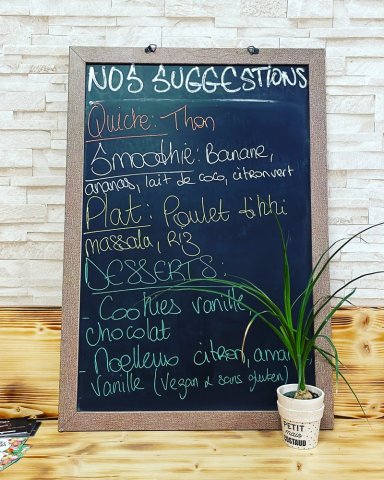 NOS SUGGESTIONS
Quiche: Thon
Smoothie: Banane,
ananas, lait de coco, citron vert
Plat: Poulet tikki
massala, Riz
DESSERTS:
- Cookies vanille,
chocolat
- Moelleux citron,
vanille (vegan & sans gluten)
PETIT
mais
COSTAUD